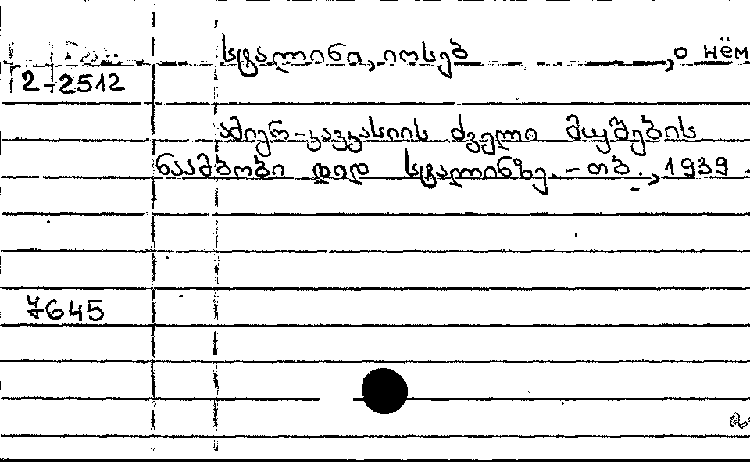 სტალინი, იოსებ , о нём
Г2-2512
ამიერ-კავკასიის ძველი მუშების
ნაამბობი დიდ სტალინზე. - თბ., 1939.
7645